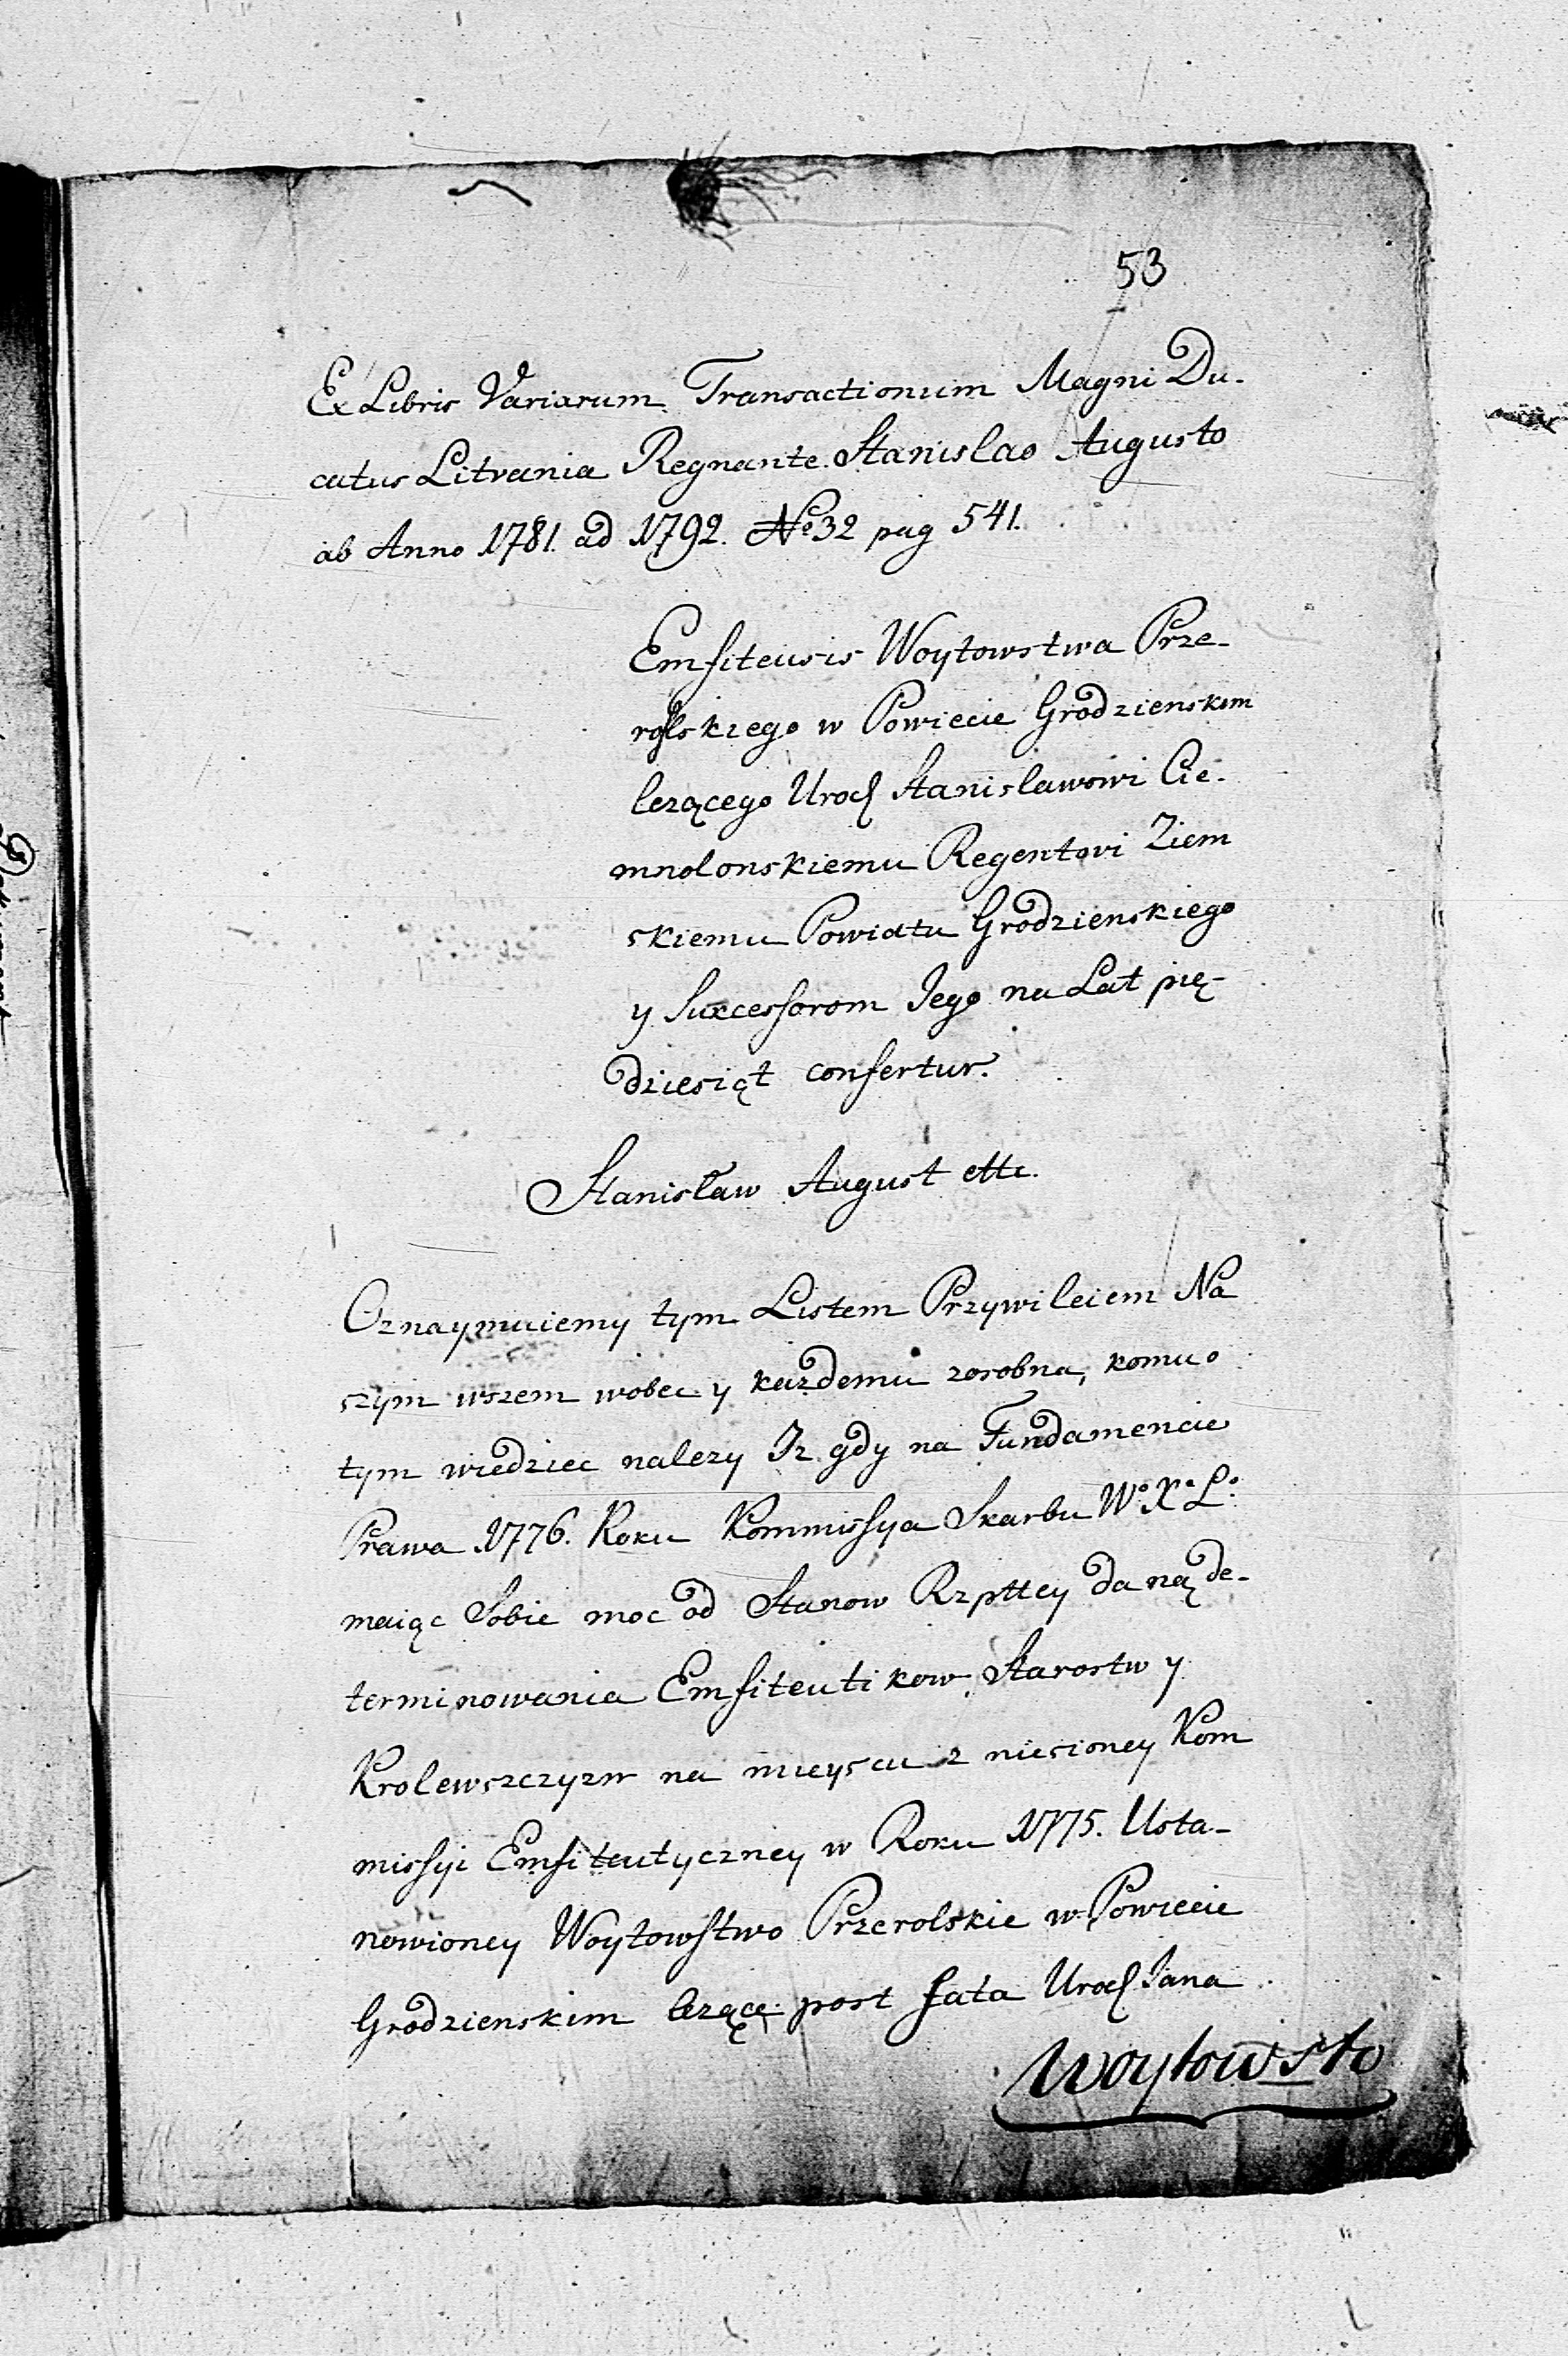 53
Ex Libris Variarum Transactionum Magni Du-
catus Litvania Regnante Stanislao Augusto
ab Anno 1781. ad 1792. No 32 pag 541.
Emfiteusis Woytowstwa Prze-
rolskiego w Powiecie Grodzienskim
lezącego Urod Stanisławowi Cie-
mnolonskiemu Regentowi Ziem
skiemu Powiatu Grodzienskiego
y Sukcessorom Jego na Lat pię-
dziesiąt confertur.
Stanisław August ettc.
Oznaymuiemy tym Listem Przywileiem Na
szym wszem wobec y każdemu zosobna, komu o
tym wiedziec nalezy Iz gdy na Fundamencie
Prawa 1776. Roku Kommissya Skarbu Wo Xa Lo
maiąc Sobie moc od Stanow Rzpttey daną de-
terminowania Emfiteutikow, Starostw y
Krolewszczyzn na mieyscu zniesioney Kom
missyi Emfiteutyczney w Roku 1775. Usta-
nowioney Woytowstwo Przerolskie w Powiecie
Grodzienskim lezące post fata Urod Jana